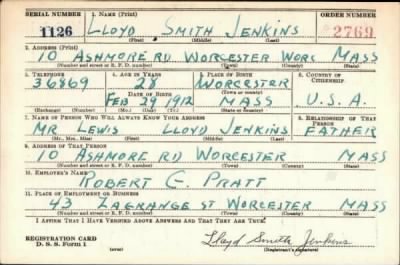 SERIAL NUMBER 1. NAME (Print) ORDER NUMBER
1126 LLOYD SMITH JENKINS 2769
(First) (Middle) (Last)
2. ADDRESS (Print)
10 ASHMORE RD WORCESTER WORC MASS
(Number and street or R. F. D. number) (Town) (County) (State)
3. TELEPHONE 4. AGE IN YEARS 5. PLACE OF BIRTH 6. COUNTRY OF CITIZENSHIP
36869 28 WORCESTER
DATE OF BIRTH (Town or county)
FEB 29 1912 MASS U.S.A.
(Exchange) (Number) (Mo.) (Day) (Yr.) (State or country)
7. NAME OF PERSON WHO WILL ALWAYS KNOW YOUR ADDRESS 8. RELATIONSHIP OF THAT PERSON
MR LEWIS LLOYD JENKINS FATHER
(Mr., Mrs., Miss) (First) (Middle) (Last)
9. ADDRESS OF THAT PERSON
10 ASHMORE RD WORCESTER MASS
(Number and street or R. F. D. number) (Town) (County) (State)
10. EMPLOYER'S NAME
ROBERT G. PRATT
11. PLACE OF EMPLOYMENT OR BUSINESS
43 LAGRANGE ST WORCESTER MASS
(Number and street or R. F. D. number) (Town) (County) (State)
I AFFIRM THAT I HAVE VERIFIED ABOVE ANSWERS AND THAT THEY ARE TRUE.
REGISTRATION CARD Lloyd Smith Jenkins
D. S. S. Form 1 (Registrant's signature)